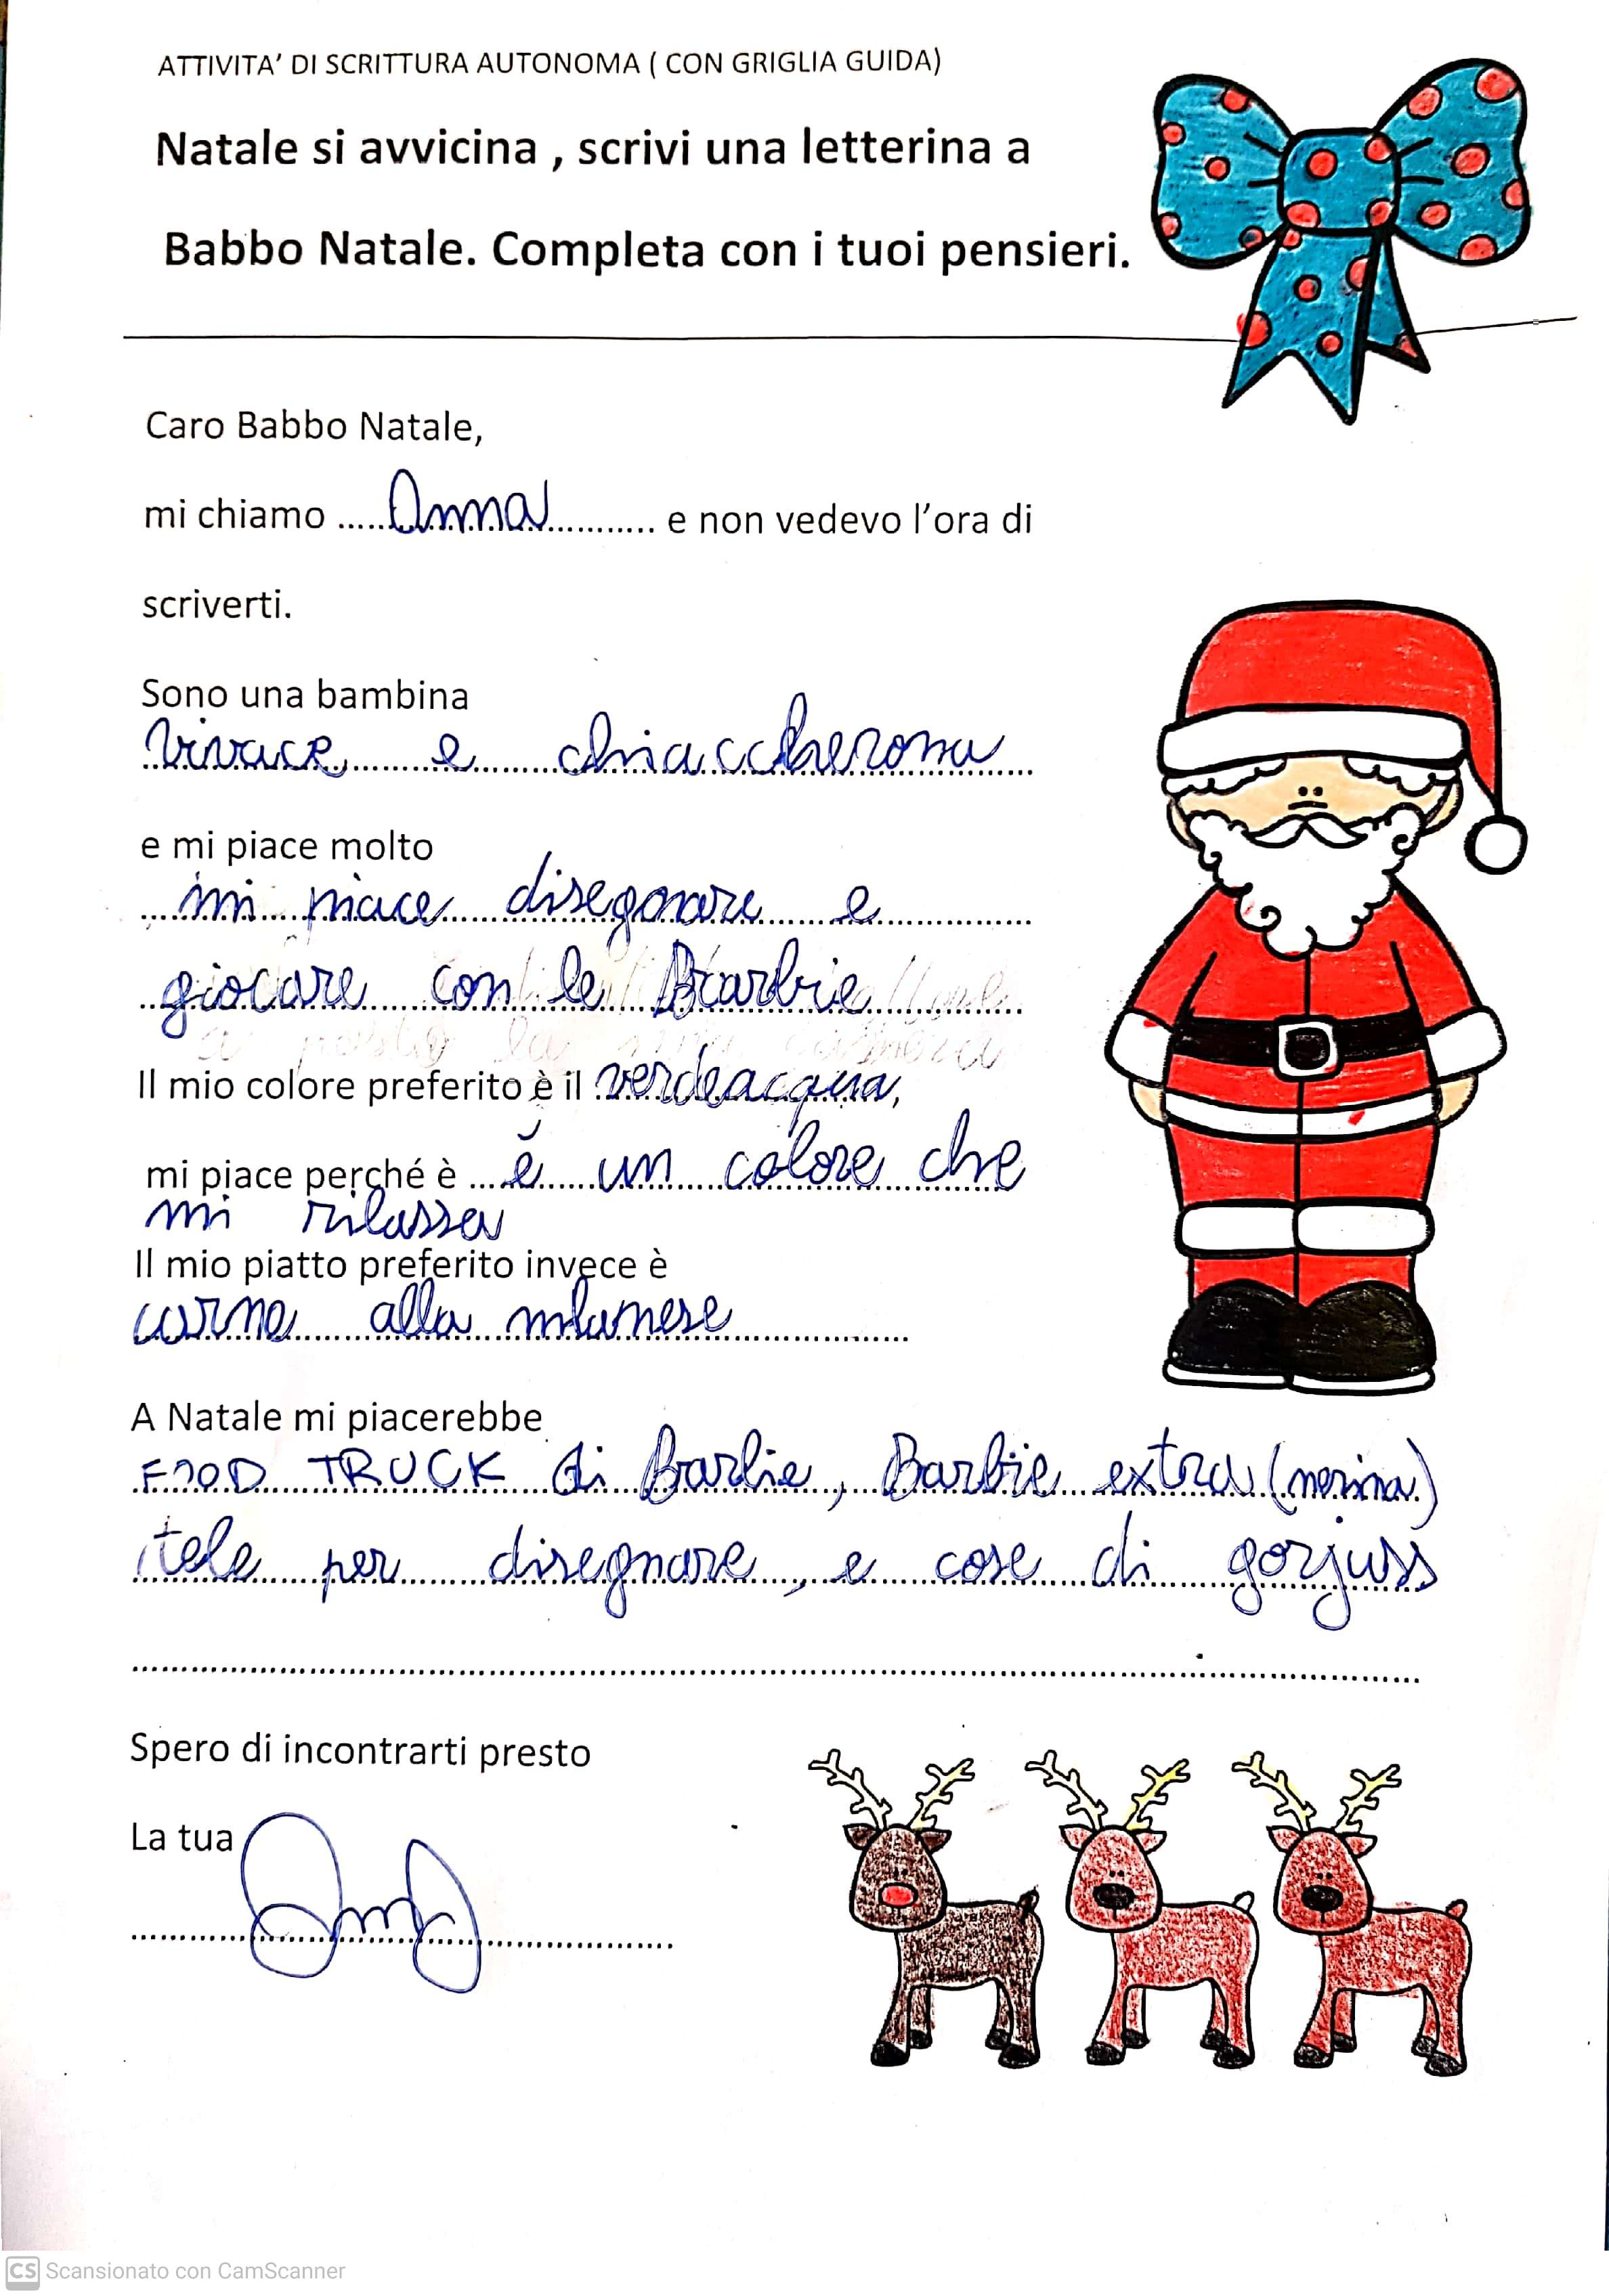 ATTIVITA' DI SCRITTURA AUTONOMA ( CON GRIGLIA GUIDA)
Natale si avvicina , scrivi una letterina a
Babbo Natale. Completa con i tuoi pensieri.
Caro Babbo Natale,
mi chiamo ..... Anna ............ e non vedevo l'ora di
scriverti.
Sono una bambina
vivace e chiaccherona
e mi piace molto
mi piace disegnare e
giocare con le Barbie
Il mio colore preferito è il verdeacqua,
mi piace perché è ... è un colore che
mi rilassa
Il mio piatto preferito invece è
carne alla milanese
A Natale mi piacerebbe
FOOD TRUCK di Barbie, Barbie extra (nerina)
tele per disegnare, e cose di gorjuss
Spero di incontrarti presto
La tua
CS Scansionato con CamScanner